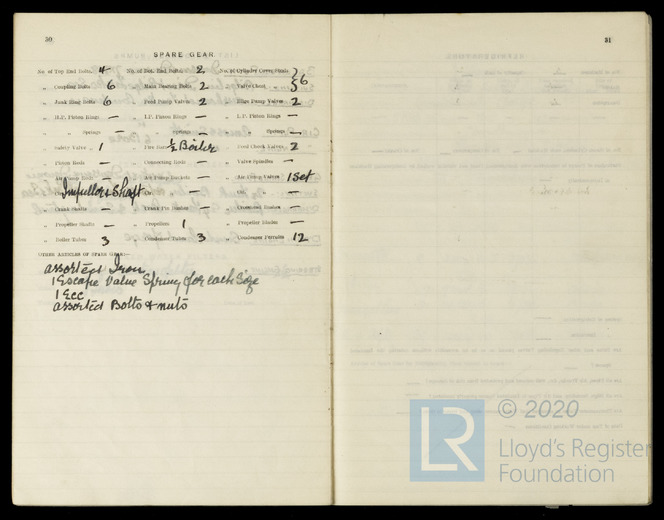 30
31
SPARE GEAR.
No. of Top End Bolts, 4 No. of Bot. End Bolts, 2 No. of Cylinder Cover Studs } 6
" Coupling Bolts 6 " Main Bearing Bolts 2 " Valve Chest " }
" Junk Ring Bolts 6 " Feed Pump Valves 2 " Bilge Pump Valves 2
" H.P. Piston Rings — " I.P. Piston Rings — " L.P. Piston Rings —
" " Springs — " " Springs — " " Springs —
" Safety Valve " 1 " Fire Bars ½ Boiler " Feed Check Valves 2
" Piston Rods — " Connecting Rods — " Valve Spindles —
" Air Pump Rods — " Air Pump Buckets — " Air Pump Valves 1 Set
Impellor & Shaft
" Crank Shafts — " Crank Pin Bushes — " Crosshead Bushes —
" Propeller Shafts — " Propellers 1 " Propeller Blades —
" Boiler Tubes 3 " Condenser Tubes 3 " Condenser Ferrules 12
OTHER ARTICLES OF SPARE GEAR:—
assorted Iron
1 Escape Valve Spring for each Size
1 Ecc
assorted Bolts & nuts
© 2020
LR
Lloyd's Register
Foundation